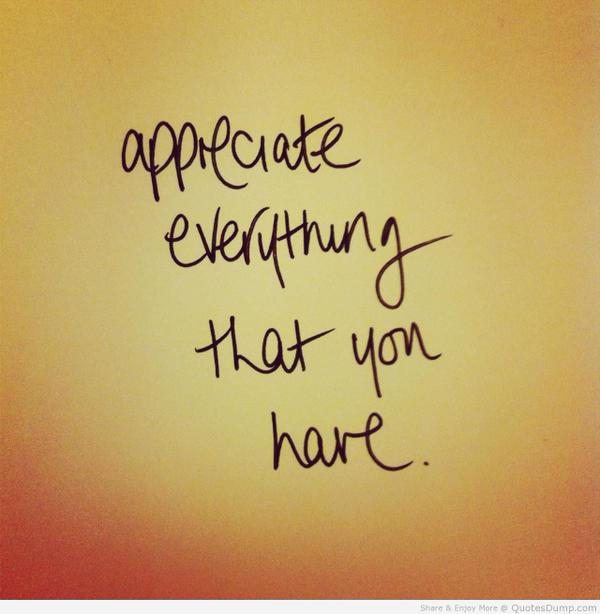 appreciate
everything
that you
have.
Share & Enjoy More @ QuotesDump.com